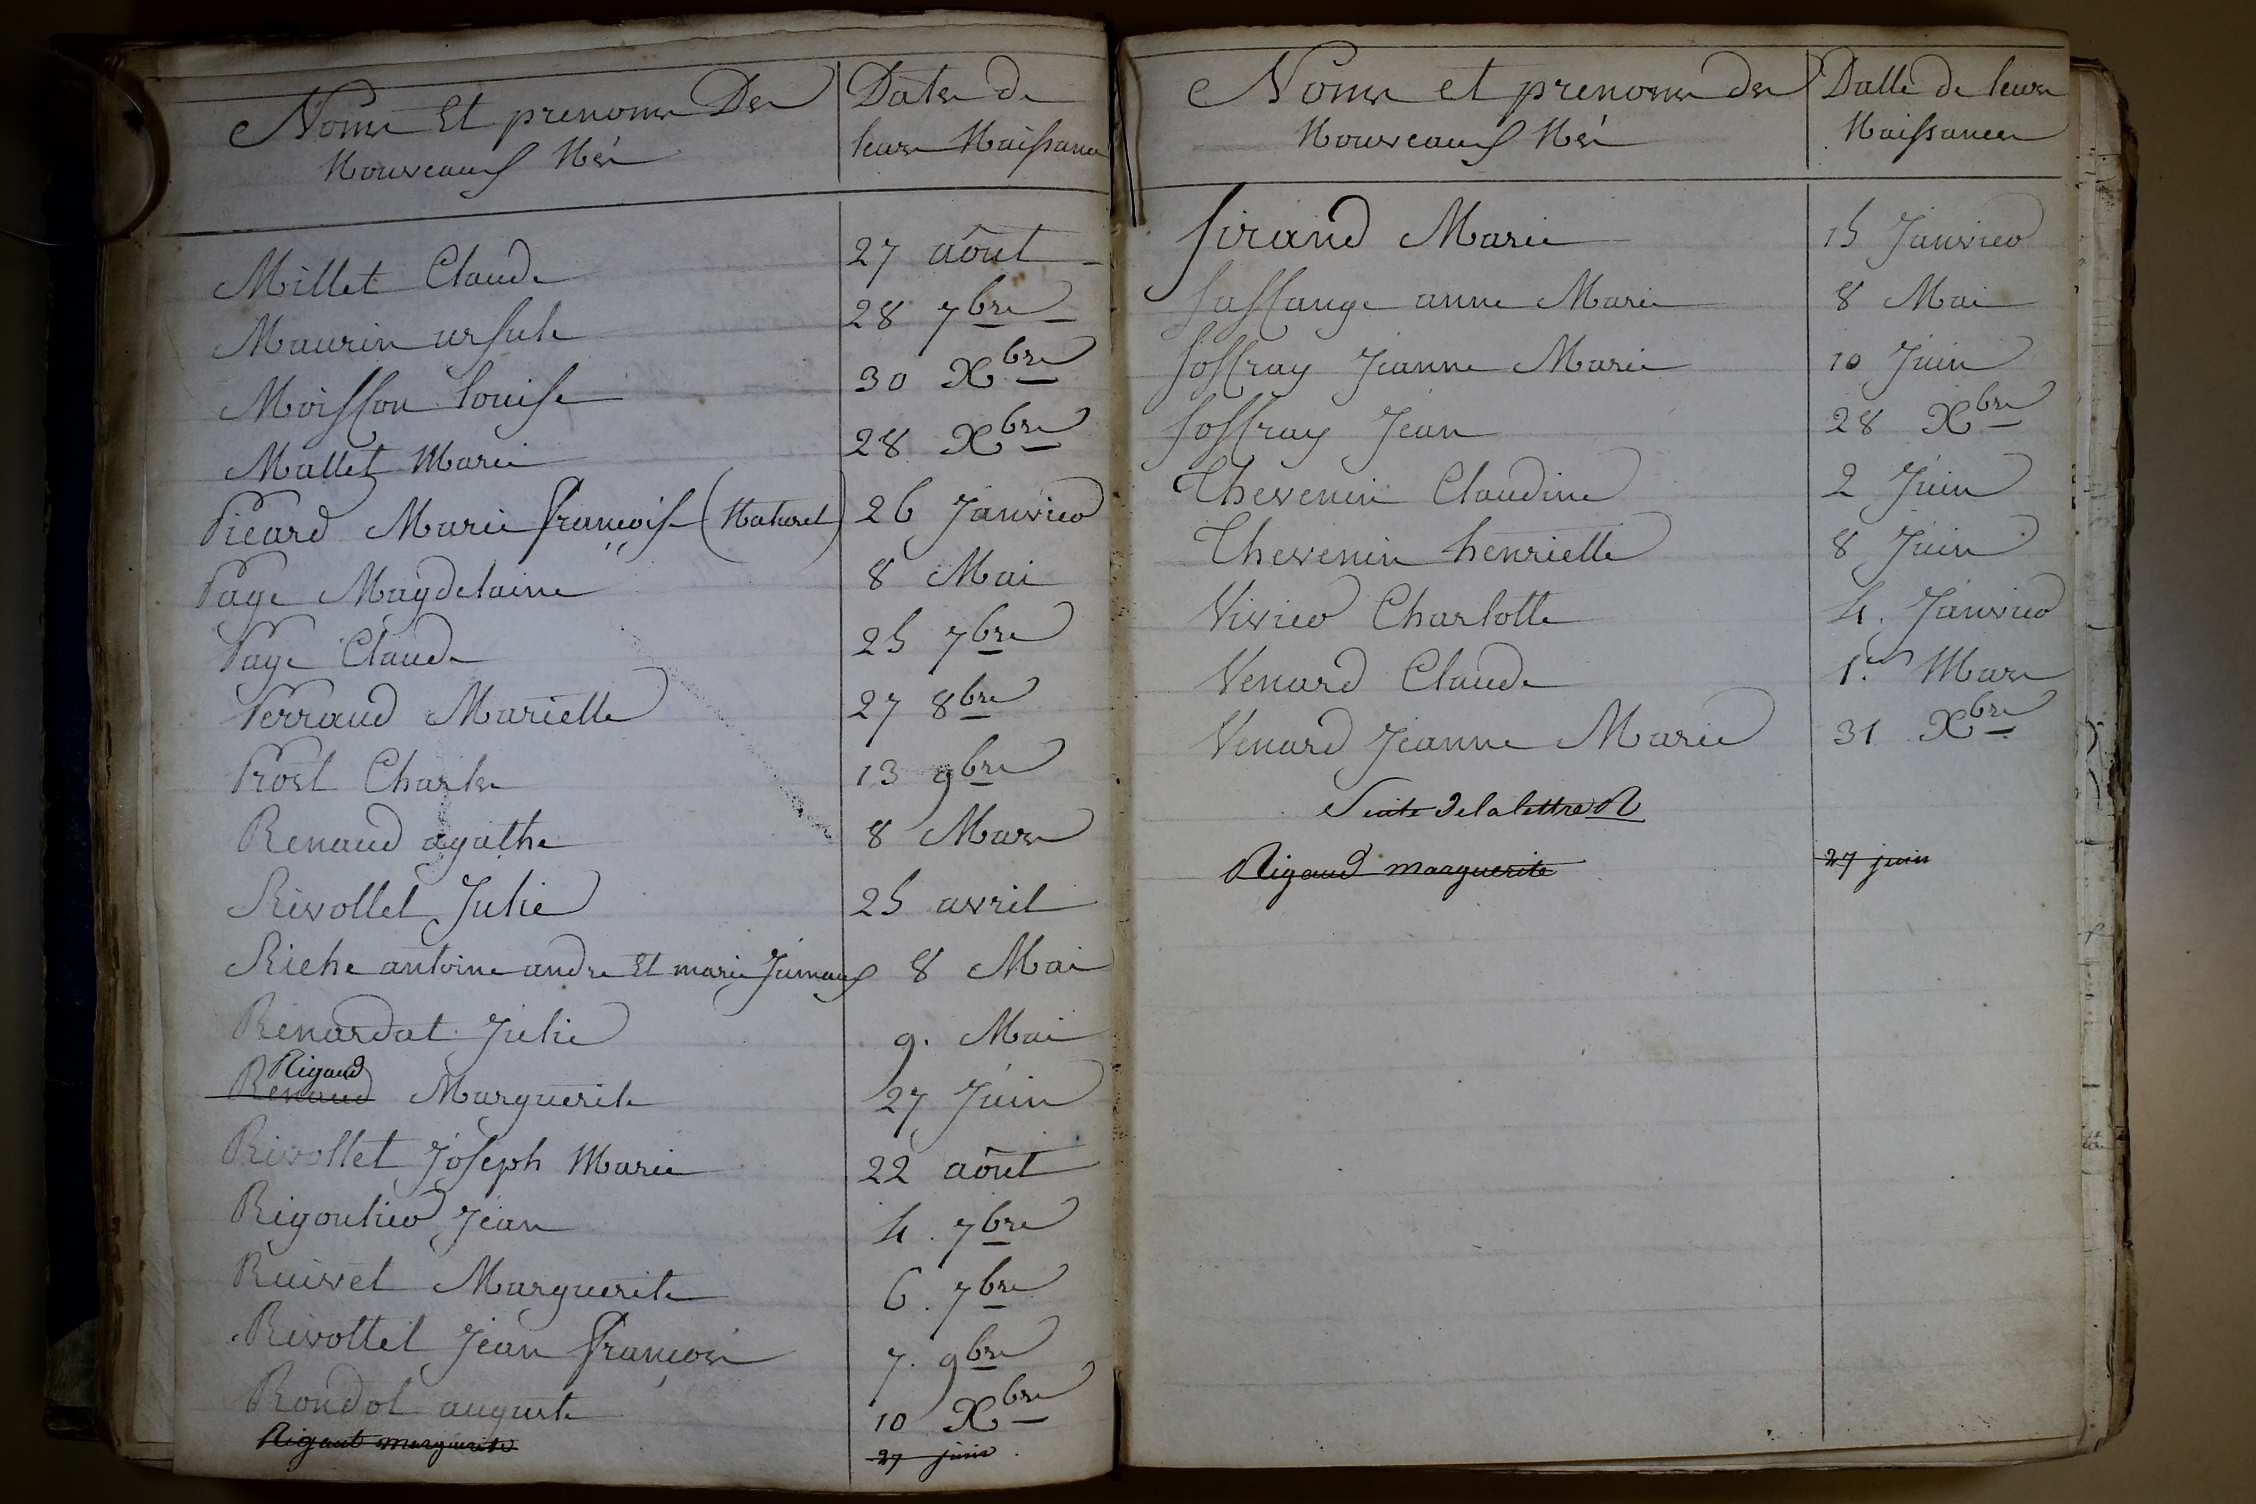 Noms Et prenoms Des
Nouveaux Nés
Dates de
leurs Naissance
Millet Claude 27 août
Maurin ursule 28 7bre
Moisson louise 30 Xbre
Mallet Marie 28 Xbre
Picard Marie françoise (Naturel) 26 Janvier
Page Magdelaine 8 Mai
Page Claude 25 7bre
Perraud Mariette 27 8bre
Prost Charles 13 9bre
Renaud agathe 8 Mars
Rivollet Julie 25 avril
Riche antoine andre Et marie Jumaux 8 Mai
Renardat Julie 9. Mai
Rigaud
Renaud Marguerite 27 Juin
Rivollet Joseph Marie 22 août
Rigoulier Jean 4. 7bre
Ruivet Marguerite 6. 7bre
Rivollet Jean françois 7. 9bre
Rondot auguste 10 Xbre
Rigaut marguerite 27 juin
Noms et prenoms des
Nouveaux Nés
Datte de leurs
Naissances
Sirand Marie 15 Janvier
Sassange anne Marie 8 Mai
Soffray Jeanne Marie 10 Juin
Soffray Jean 28 Xbre
Thevenin Claudine 2 Juin
Thevenin henriette 8 Juin
Vivier Charlotte 4. Janvier
Venard Claude 1.er Mars
Venard Jeanne Marie 31 Xbre
Suite de la lettre R
Rigaud marguerite 27 juin